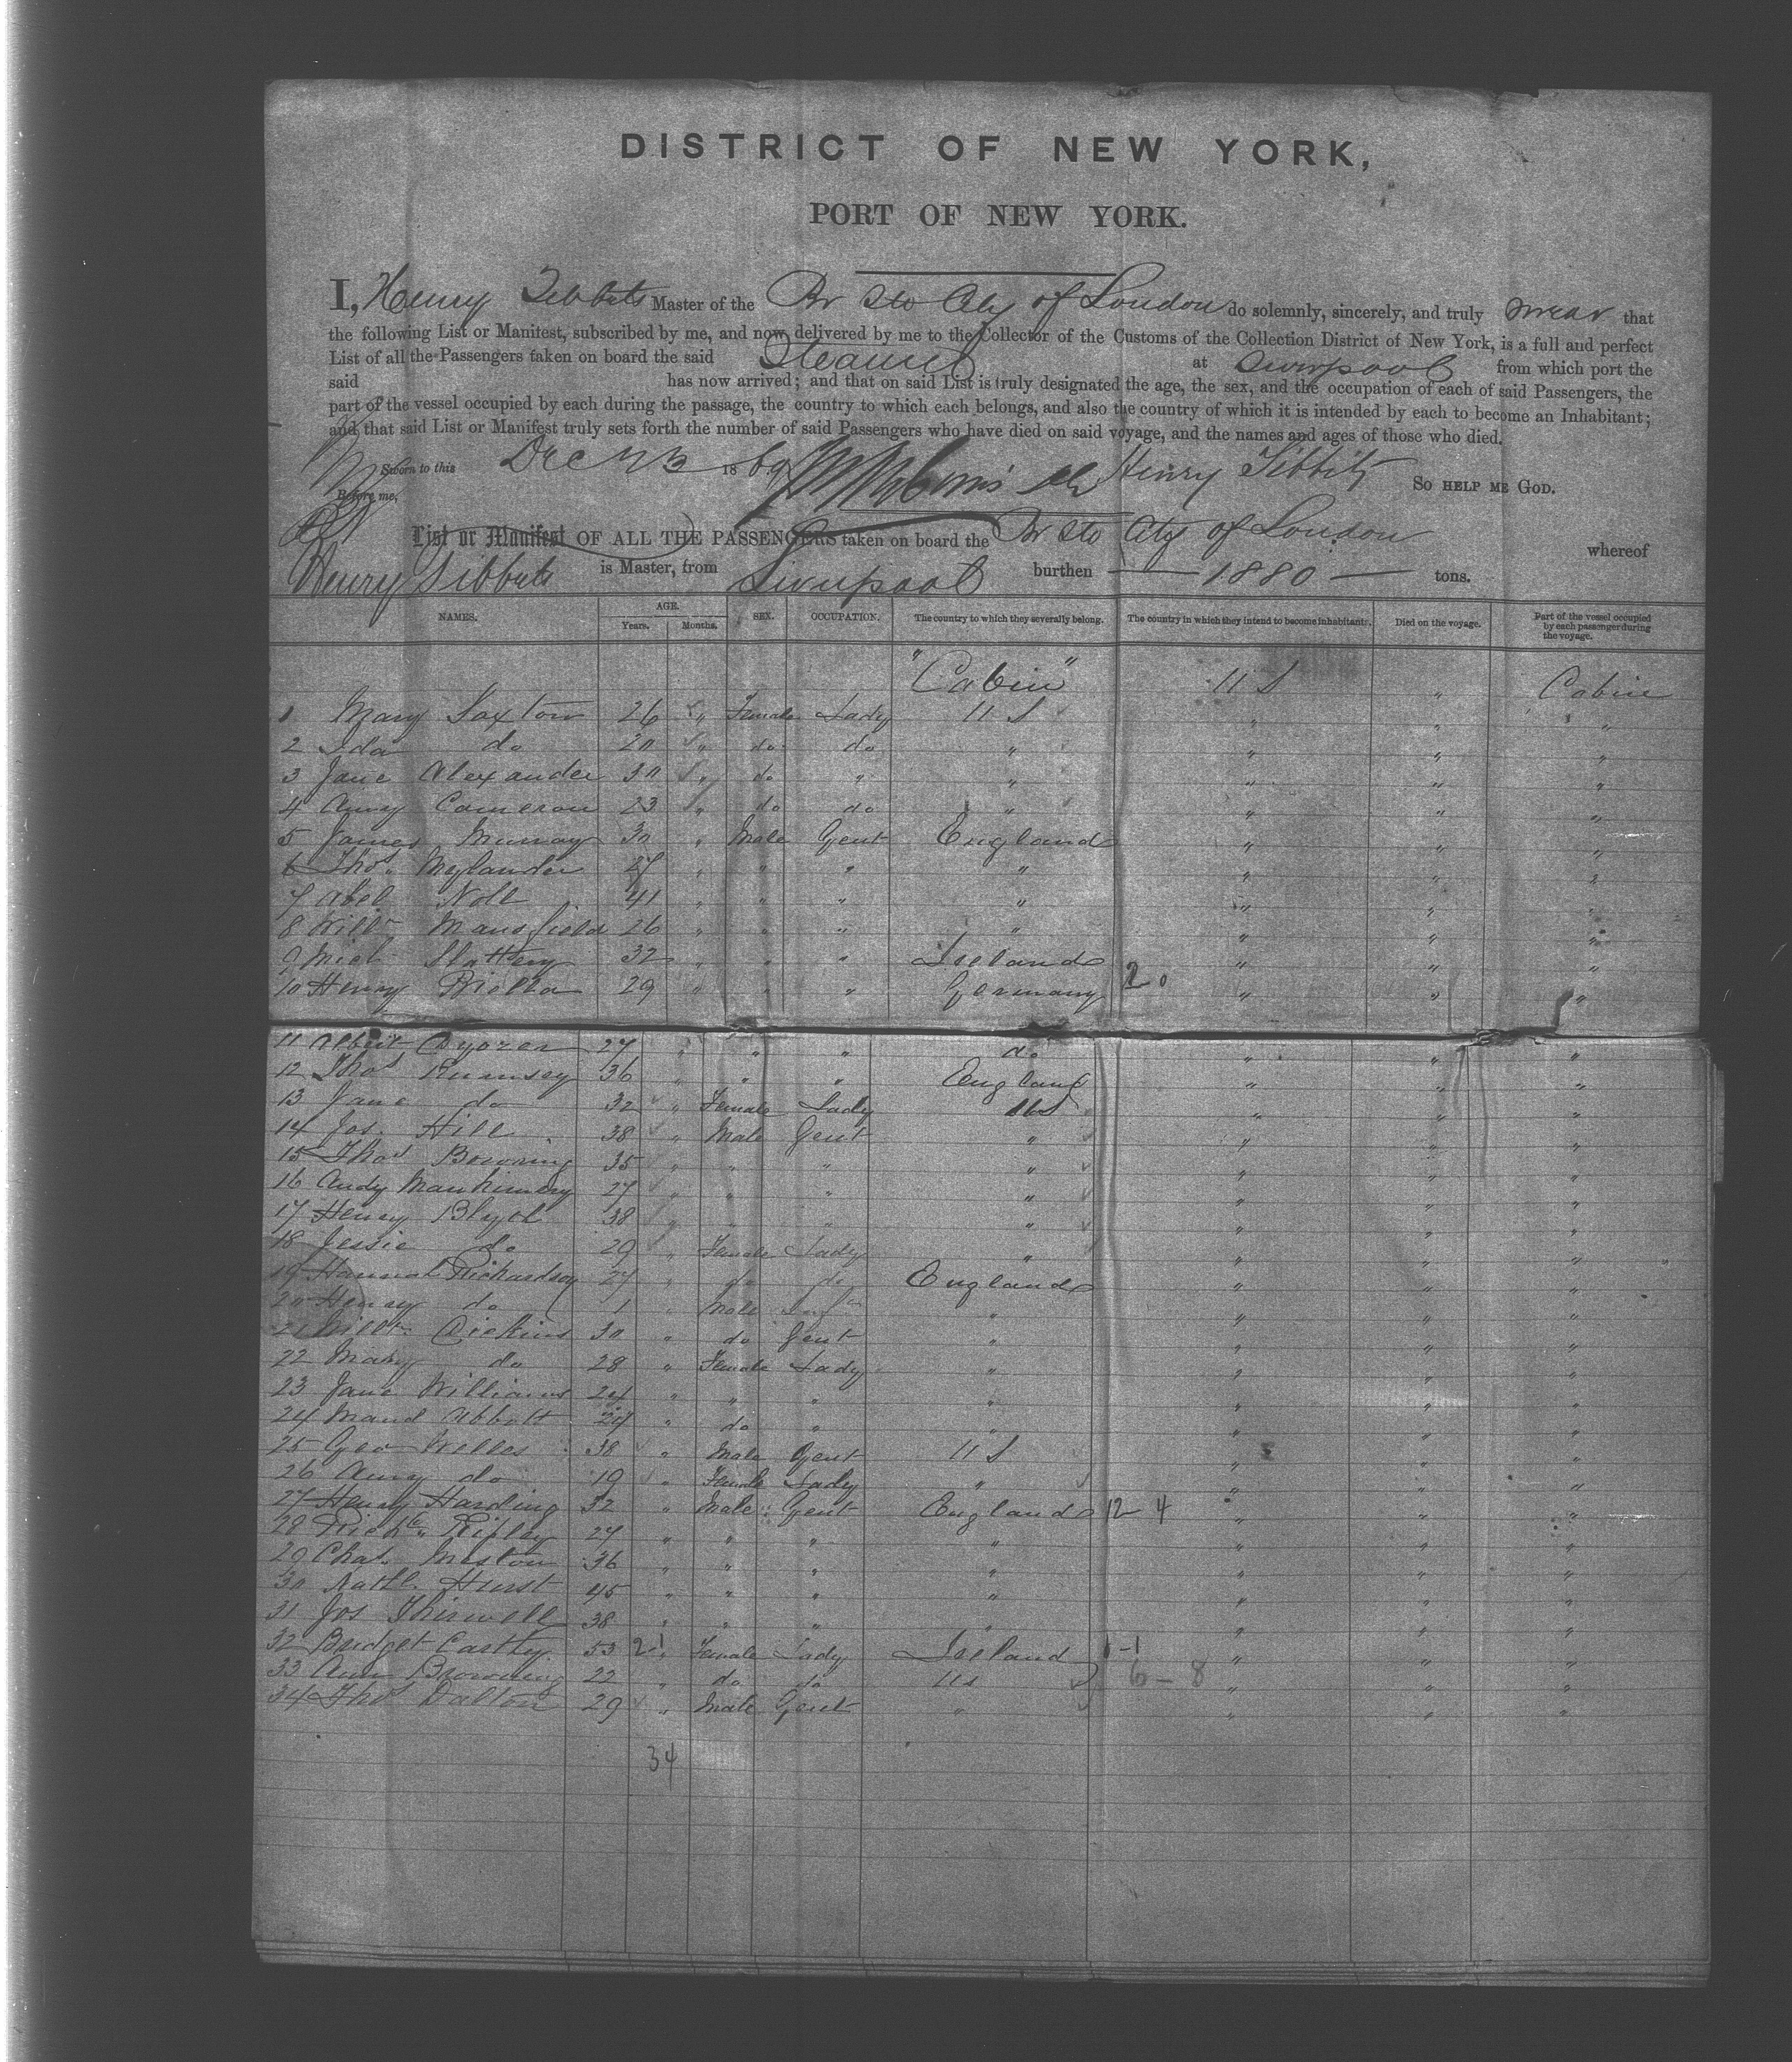 DISTRICT OF NEW YORK,
PORT OF NEW YORK.
I, Henry Tibbits Master of the Br Str City of London do solemnly, sincerely, and truly swear that
the following List or Manifest, subscribed by me, and now delivered by me to the Collector of the Customs of the Collection District of New York, is a full and perfect
List of all the Passengers taken on board the said Steamer at Liverpool from which port the
said has now arrived; and that on said List is truly designated the age, the sex, and the occupation of each of said Passengers, the
part of the vessel occupied by each during the passage, the country to which each belongs, and also the country of which it is intended by each to become an Inhabitant;
and that said List or Manifest truly sets forth the number of said Passengers who have died on said voyage, and the names and ages of those who died.
Sworn to this Dec 1869 Henry Tibbits So HELP ME GOD.
Before me,
List or Manifest OF ALL THE PASSENGERS taken on board the Br Str City of London whereof
Henry Tibbits is Master, from Liverpool burthen 1880 tons.
NAMES. AGE. Years. Months. SEX. OCCUPATION. The country to which they severally belong. The country in which they intend to become inhabitants. Died on the voyage. Part of the vessel occupied by each passenger during the voyage.
"Cabin" U S " Cabin
1 Mary Saxton 26 " Female Lady U S " " "
2 Ida do 20 " do do " " " "
3 Jane Alexander 30 " do " " " " "
4 Amy Cameron 23 " do do " " " "
5 James Murray 30 " Male Gent England " " "
6 Thos Mylander 27 " " " " " " "
7 Abel Noll 41 " " " " " " "
8 Willm Mansfield 26 " " " " " " "
9 Mich Slattery 32 " " " Ireland " " "
10 Henry 29 " " " Germany 20 " " "
11 Albert 27 " " " do " " "
12 Thos Rumsey 36 " " " England " " "
13 Jane do 32 " Female Lady U S " " "
14 Jos. Hill 38 " Male Gent " " " "
15 Thos Browning 35 " " " " " " "
16 Andy 27 " " " " " " "
17 Henry Blyth 38 " " " " " " "
18 Jessie do 29 " Female Lady " " " "
19 Hannah Richardson 27 " do do England " " "
20 Henry do 1 " Male " " " "
21 Willm Dickins 30 " do Gent " " " "
22 Mary do 28 " Female Lady " " " "
23 Jane Williams 24 " " " " " " "
24 Maud Abbott 24 " do " " " " "
25 Geo Welles 38 " Male Gent U S " " "
26 Amy do 19 " Female Lady " " " "
27 Henry Harding 32 " Male Gent England 12 4 " " "
28 Richd Ripley 27 " " " " " " "
29 Chas. Meston 36 " " " " " " "
30 Nathl Hurst 45 " " " " " " "
31 Jos Thirwell 38 " " " " " " "
32 Bridget Castley 53 2-1 " Female Lady Ireland 1-1 " " "
33 Ann Browning 22 " do do U S 6-8 " " "
34 Thos Dalton 29 " Male Gent " " " "
34